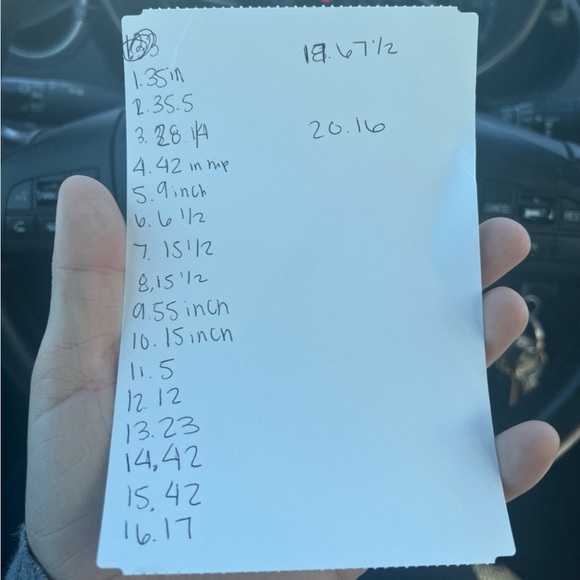 1.35in
2.35.5
3.28.1/4
4.42 in hip
5.9inch
6.6 1/2
7. 15 1/2
8,15 1/2
9.55 inch
10. 15 inch
11. 5
12. 12
13. 23
14, 42
15. 42
16. 17
19. 67 1/2
20. 16